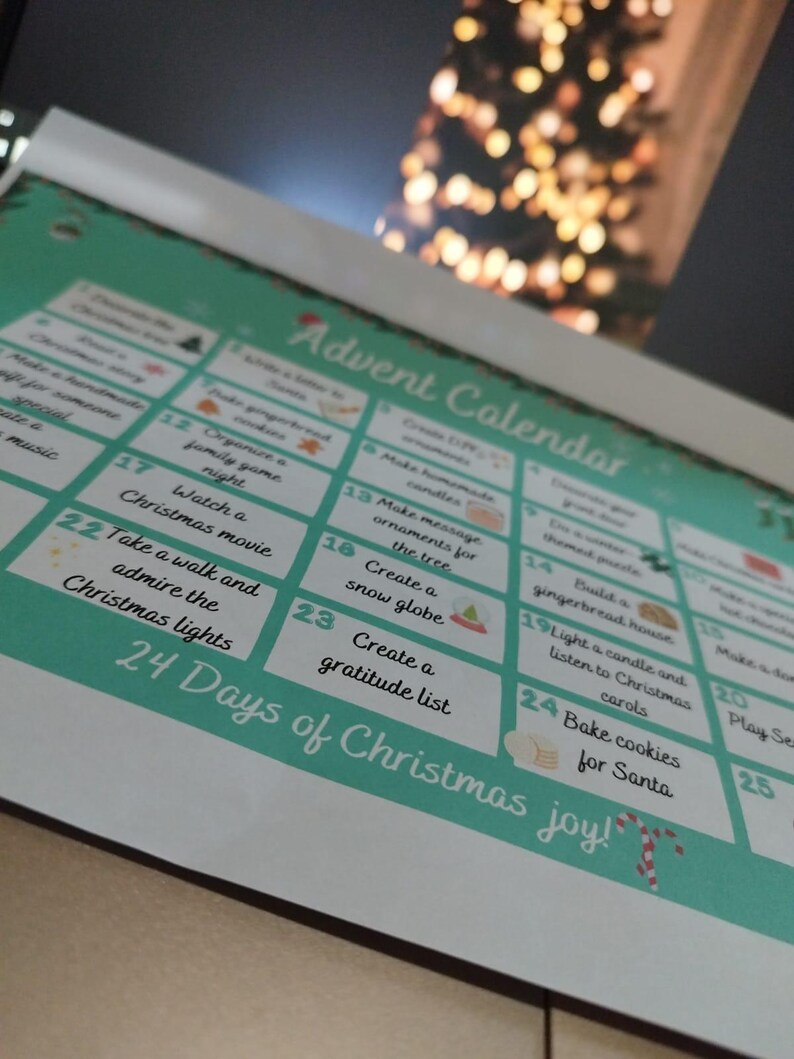 Advent Calendar
1 Decorate the
Christmas tree
2 Write a letter to
Santa
3 Create DIY
ornaments
4 Decorate your
front door
6 Read a
Christmas story
7 Bake gingerbread
cookies
8 Make homemade
candles
9 Do a winter
themed puzzle
10 Make a
hot
Make a handmade
gift for someone
special
12 Organize a
family game
night
13 Make message
ornaments for
the tree
14 Build a
gingerbread house
15
Make a
music
17 Watch a
Christmas movie
18 Create a
snow globe
19 Light a candle and
listen to Christmas
carols
20
Play
22 Take a walk and
admire the
Christmas lights
23 Create a
gratitude list
24 Bake cookies
for Santa
25
24 Days of Christmas joy!